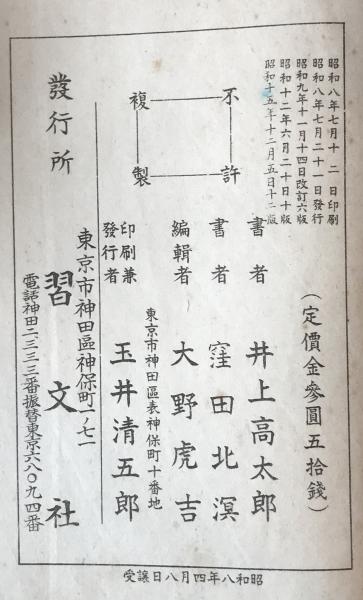 昭和八年七月十二日印刷
昭和八年七月二十一日發行
昭和九年十一月十四日改訂六版
昭和十二年六月二十日十版
昭和十五年十二月五日十二版
不許
複製
(定價金參圓五拾錢)
書者 井上高太郎
書者 窪田北溟
編輯者 大野虎吉
東京市神田區表神保町十番地
印刷兼
發行者 玉井清五郎
發行所
東京市神田區神保町一ノ七一
習文社
電話神田二三三三番振替東京六八〇九四番
昭和八年四月八日讓受